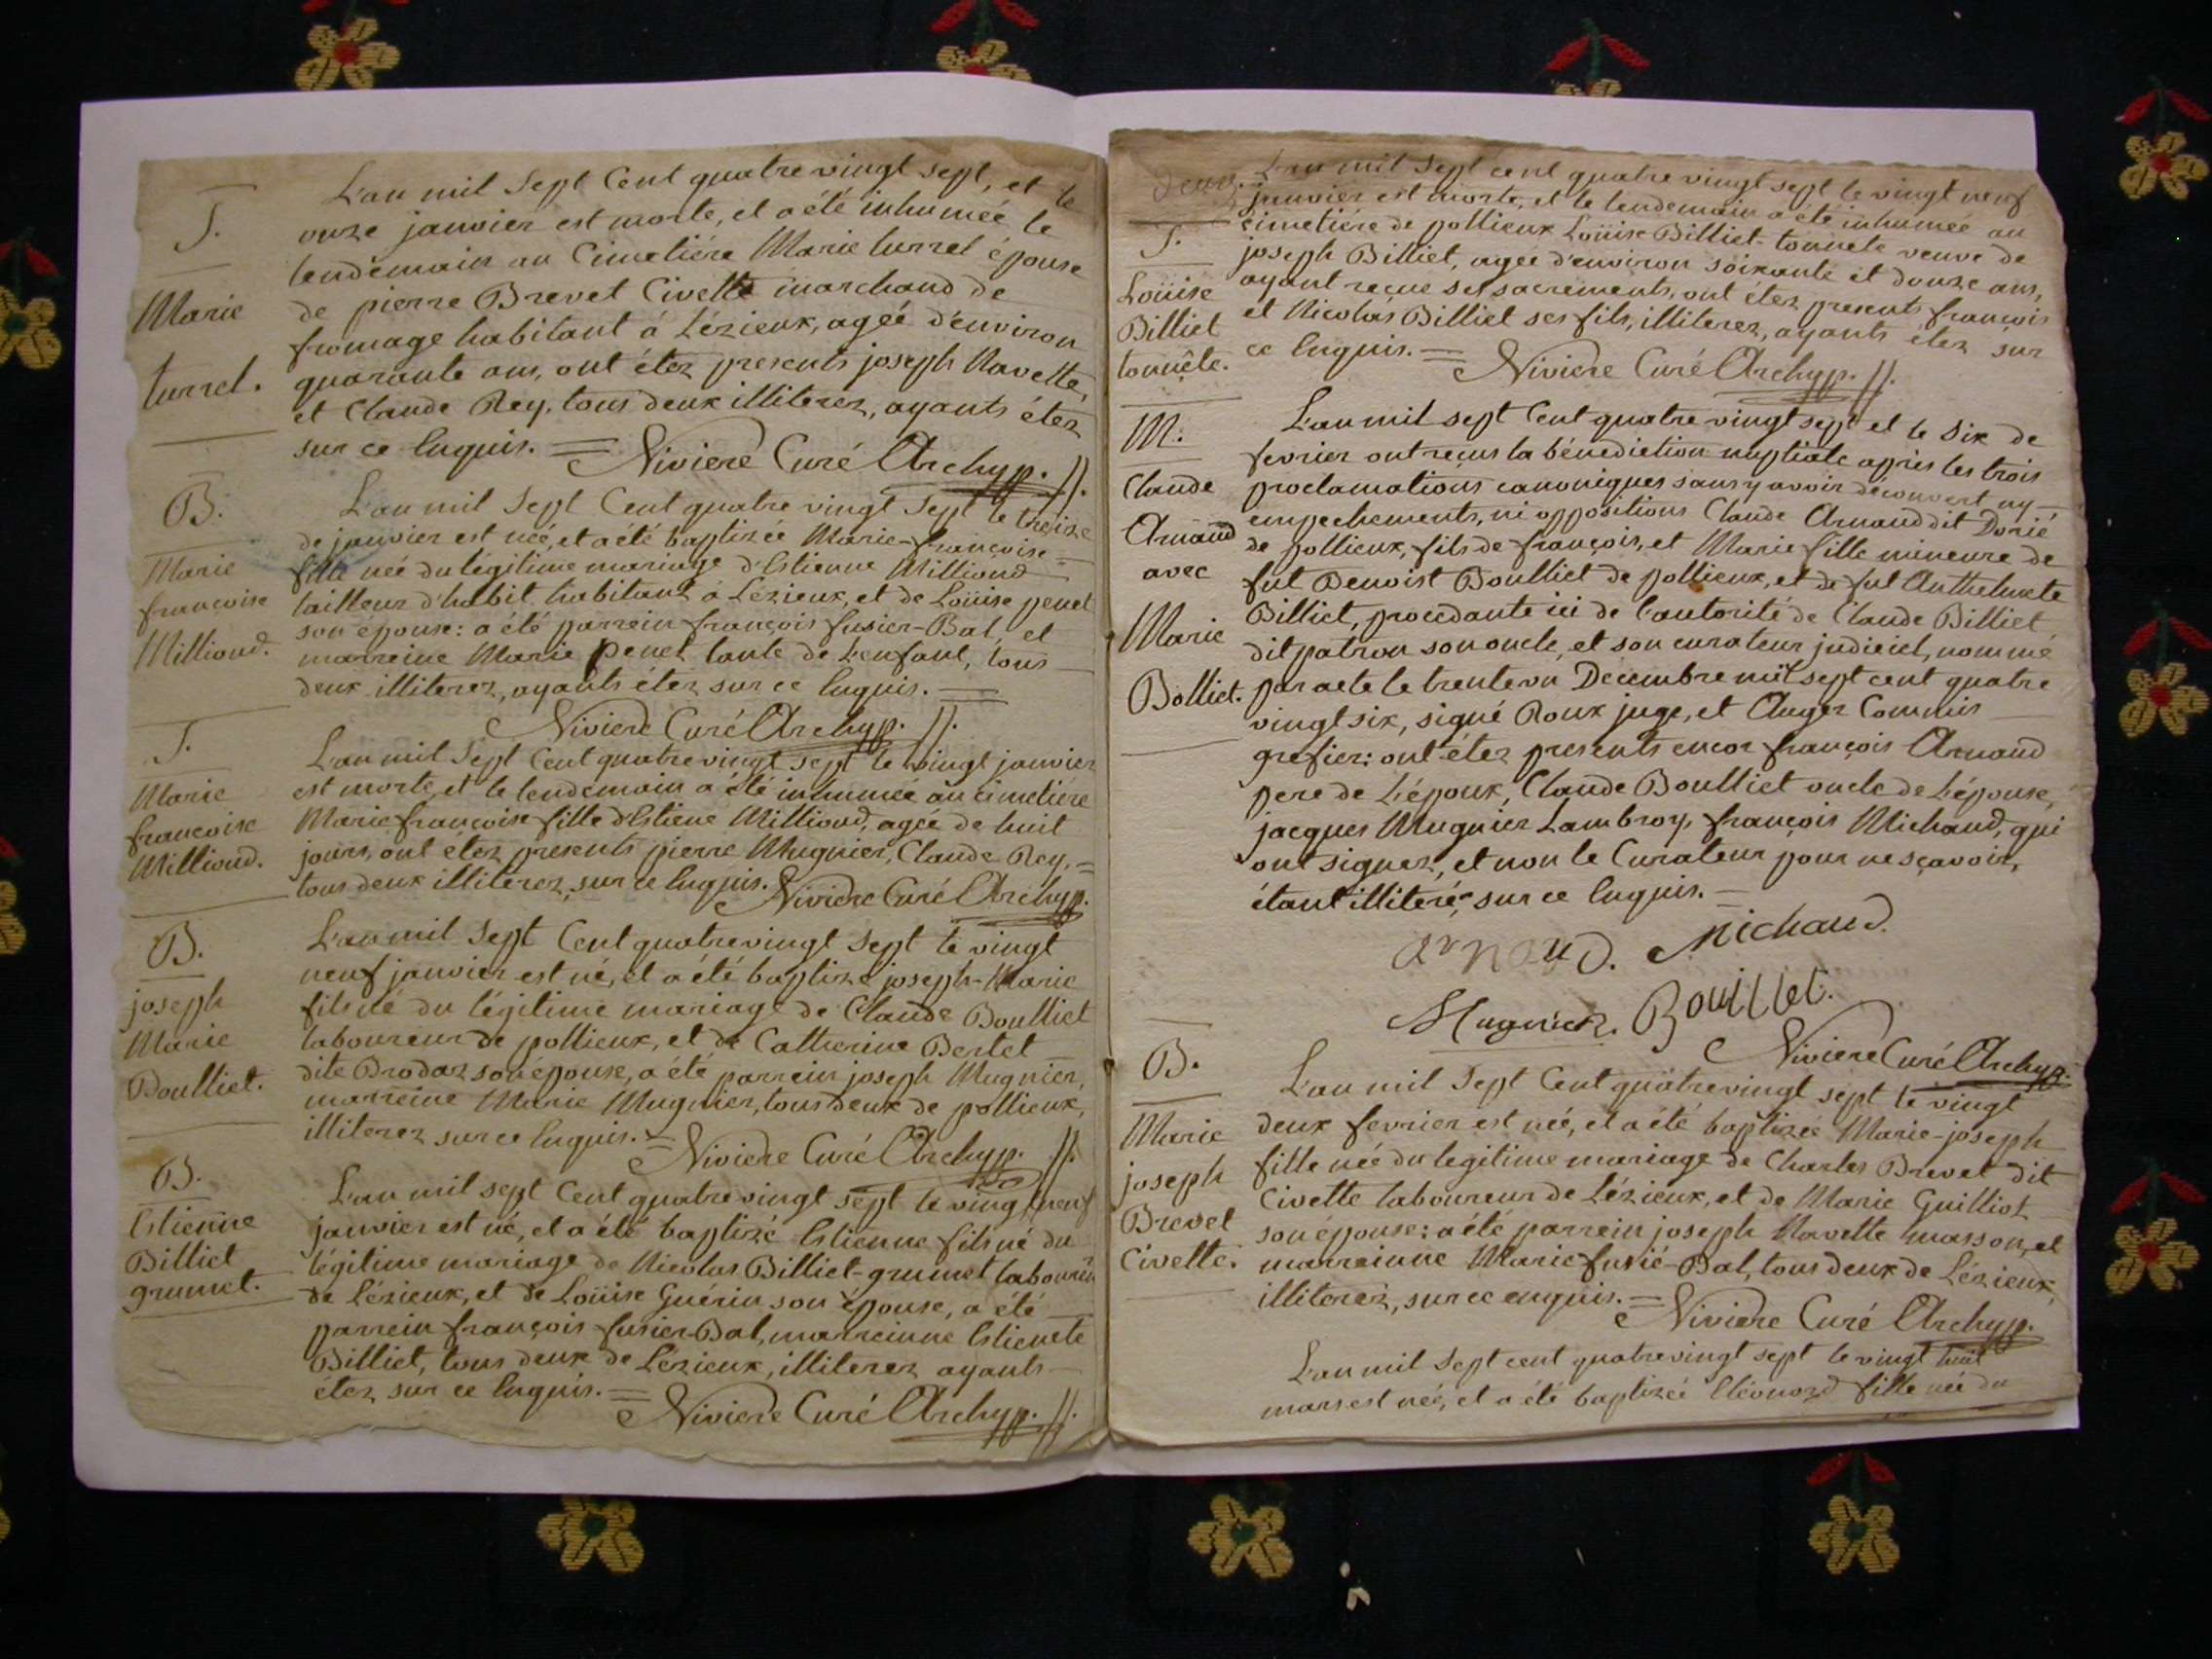 S.
Marie
turrel.
L'an mil Sept Cent quatre vingt sept, et le
onze janvier est morte, et a été inhumée le
lendemain au Cimetiére Marie turrel épouse
de pierre Brevet Civette marchand de
fromage habitant á Lézieux, ageé d'environ
quarante ans, ont étez presents joseph Navette,
et Claude Rey, tous deux illiterez, ayants étez
sur ce Enquis. = Niviere Curé Archyp. //.
B.
Marie
francoise
Milliond.
L'an mil Sept Cent quatre vingt Sept le treize
de janvier est née, et a été baptizée Marie-françoise
fille née du légitime mariage d'Estienne Milliond
tailleur d'habit habitant á Lézieux, et de Loüise penet
son épouse: a été parrein françois fusier-Bal, et
marreine Marie penet tante de L'enfant, tous
deux illiterez, ayants étez sur ce Enquis. =
Niviere Curé Archyp. //.
S.
Marie
francoise
Milliond.
L'an mil Sept Cent quatre vingt sept le vingt janvier
est morte, et le lendemain a été inhumée au cimetiére
Marie françoise fille d'Estiene Milliond, agée de huit
jours, ont étez presents pierre Mugnier, Claude Rey, =
tous deux illiterez, sur ce Enquis. Niviere Curé Archyp.
B.
joseph
Marie
Boulliet.
L'an mil Sept Cent quatre vingt Sept le vingt
neuf janvier est né, et a été baptizé joseph-Marie
fils né du légitime mariage de Claude Boulliet
laboureur de pollieux, et de Catherine Bertet
dite Brodaz son épouse, a été parrein joseph Mugnier,
marreine Marie Mugnier, tous deux de pollieux,
illiterez sur ce Enquis. = Niviere Curé Archyp. //.
B.
Estienne
Billiet
grumet.
L'an mil sept Cent quatre vingt sept le vingt neuf
janvier est né, et a été baptizé Estienne fils né du
légitime mariage de Nicolas Billiet-grumet laboureur
de Lézieux, et de Loüise Guérin son épouse, a été
parrein françois fusier-Bal, marreinne Estienete
Billiet, tous deux de Lézieux, illiterez ayants
étez sur ce Enquis. = Niviere Curé Archyp. //.
deux.
S.
Loüise
Billiet
tonnéte.
L'an mil Sept cent quatre vingt sept le vingt neuf
janvier est morte, et le lendemain a été inhumée au
cimetiére de pollieux Loüise Billiet-tonnete veuve de
joseph Billiet, agée d'environ soixante et douze ans,
ayant reçue ses sacrements, ont étez presents françois
et Nicolas Billiet ses fils, illiterez, ayants étez sur
ce Enquis. = Niviere Curé Archyp. //.
M.
Claude
Arnaud
avec
Marie
Bolliet.
L'an mil sept Cent quatre vingt sept et le Six de
fevrier ont reçus la bénediction nuptiale apres les trois
proclamations canoniques sans y avoir découvert ny
empechements, ni oppositions Claude Arnaud dit Dorié
de pollieux, fils de françois, et Marie fille mineure de
fut Benoist Boulliet de pollieux, et de fut Anthelmete
Billiet, procedante ici de l'autorité de Claude Billiet
dit patron son oncle, et son curateur judiciel, nommé
par acte le trente un Décembre mil sept cent quatre
vingt six, signé Roux juge, et Auger Commis
grefier: ont étez presents encor françois Arnaud
pere de L'époux, Claude Boulliet oncle de L'épouse,
jacques Mugnier Lambroy, françois Michaud, qui
ont signez, et non le Curateur pour ne sçavoir,
étant illiteré, sur ce Enquis. =
arnaud. Michaud.
Mugnier. Bouillet.
Niviere Curé Archyp.
B.
Marie
joseph
Brevet
Civette.
L'an mil Sept Cent quatre vingt sept le vingt
deux fevrier est née, et a été baptizée Marie-joseph
fille née du legitime mariage de Charles Brevet dit
Civette laboureur de Lézieux, et de Marie Guilliot
son épouse: a été parrein joseph Navette masson, et
marreinne Marie fusié-Bal, tous deux de Lézieux,
illiterez, sur ce enquis. = Niviere Curé Archyp.
L'an mil Sept cent quatre vingt sept le vingt huit
mars est née, et a été baptizée Eléonord fille née du